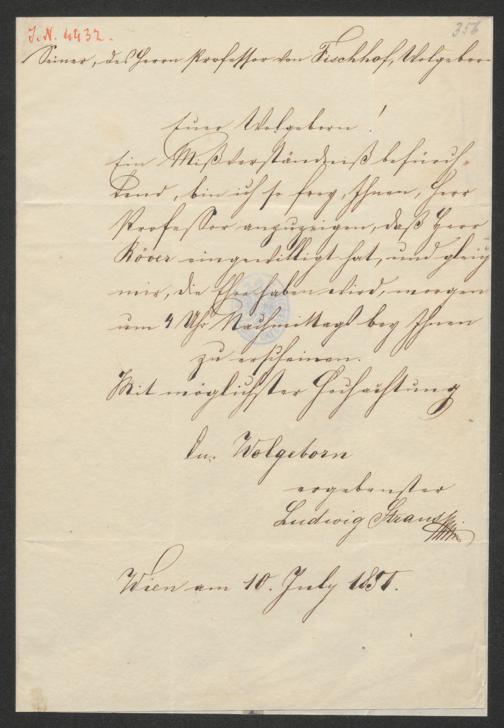 J. N. 4432.
356
Seiner, des Herrn Professor von Fischhof, Wolgeborn
Euer Wolgeborn!
Ein Mißverständniß befürch-
tend, bin ich so frey, Ihnen, Herr
Professor anzuzeigen, daß Herr
Köver eingewilligt hat, und gleich
mir, die Ehre haben wird, morgen
um 4 Uhr Nachmittags bey Ihnen
zu erscheinen.
Mit möglichster Hochachtung
Wolgeborn
ergebenster
Ludwig Straus
Wien am 10. July 185